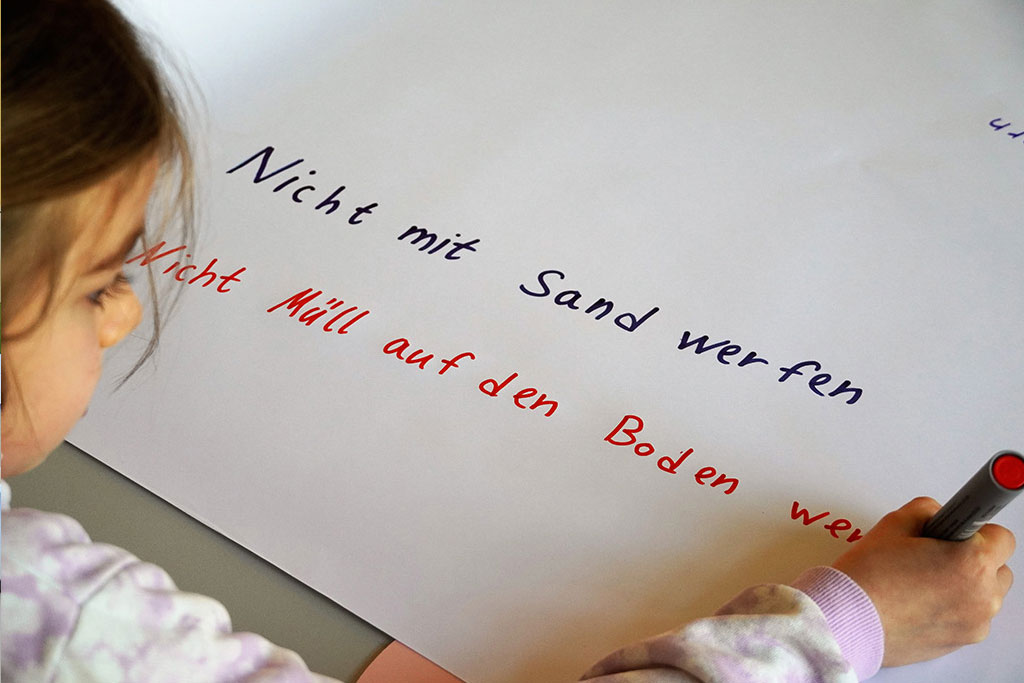 Nicht mit Sand werfen
Nicht Müll auf den Boden wer